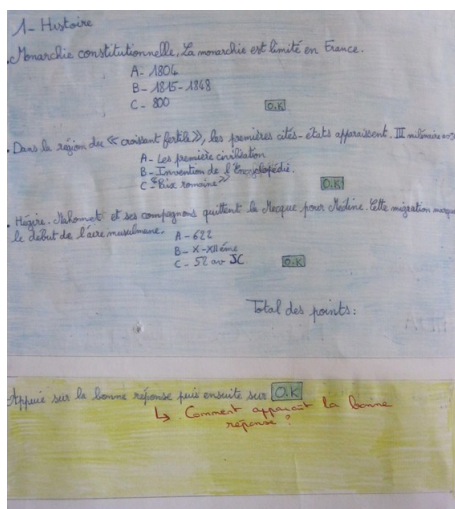 1- Histoire
. Monarchie constitutionnelle, La monarchie est limité en France.
A- 1804
B- 1815-1848
C- 800
O.K
. Dans la région du "croissant fertile", les premières cités-états apparaissent. III millénaire
A- Les première civilisation
B- Invention de l'Encyclopédie.
C "Paix romaine"
O.K
. Hégire. Mahomet et ses compagnons quittent la Mecque pour Médine. Cette migration marque
le début de l'aire musulmane.
A- 622
B- X-XIIème
C- 52 av JC
O.K
Total des points:
Appuie sur la bonne réponse puis ensuite sur O.K
↳ Comment apparait la bonne
réponse ?